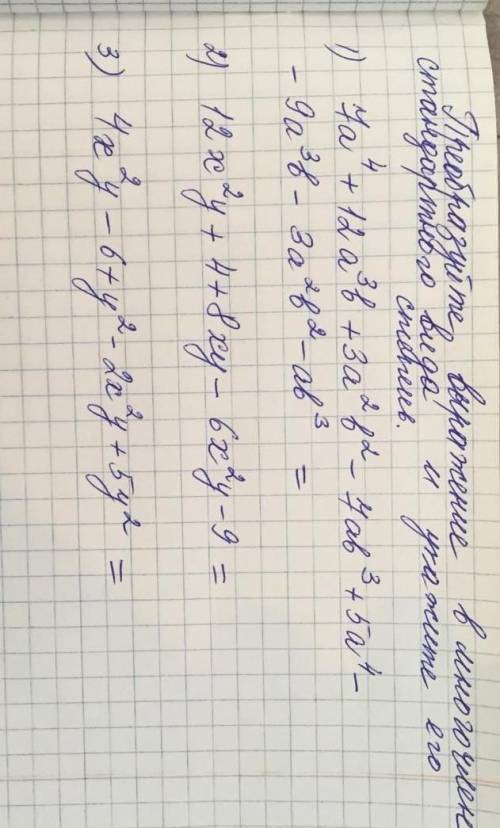 Преобразуйте выражение в многочлен
стандартного вида и укажите его
степень.
1) 7a⁴ + 12a³b + 3a²b² - 7ab³ + 5a⁴ -
- 9a³b - 3a²b² - ab³ =
2) 12x²y + 4 + 8xy - 6x²y - 9 =
3) 4x²y - 6 + y² - 2x²y + 5y² =